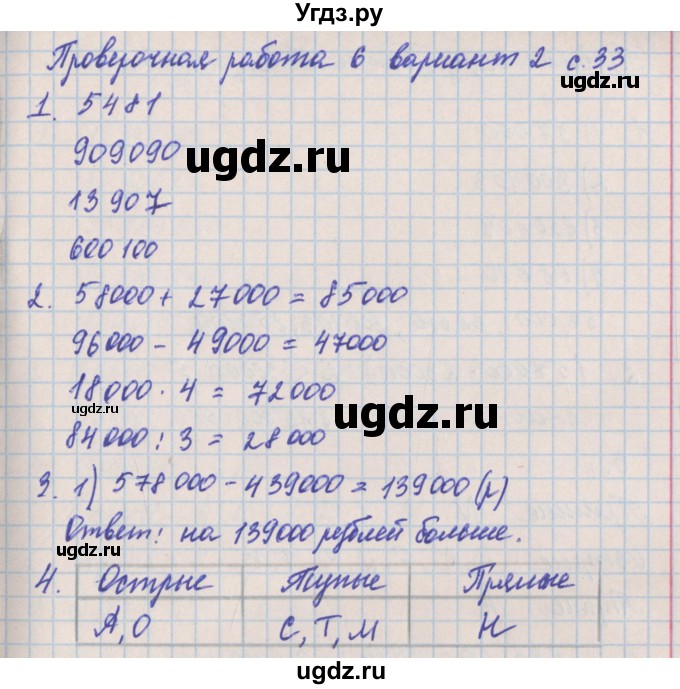 Угдз.ру
Проверочная работа 6 вариант 2 с.33
1. 5481
909090
ugdz.ru
13907
600100
2. 58000 + 27000 = 85000
96000 - 49000 = 47000
18000 · 4 = 72000
ugdz.ru
ugdz.ru
84000 : 3 = 28000
3. 1) 578000 - 439000 = 139000 (р)
Ответ: на 139000 рублей больше.
ugdz.ru
4. Острые Тупые Прямые
А, О С, Т, М Н
ugdz.ru
ugdz.ru